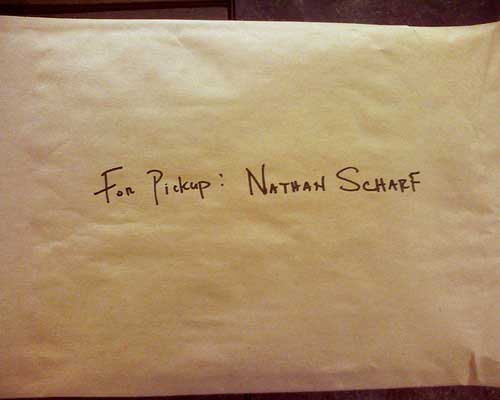 For Pickup: Nathan Scharf